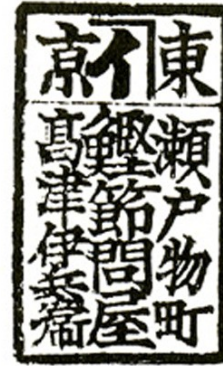 東京
イ
瀬戸物町
鰹節問屋
高津伊兵衛